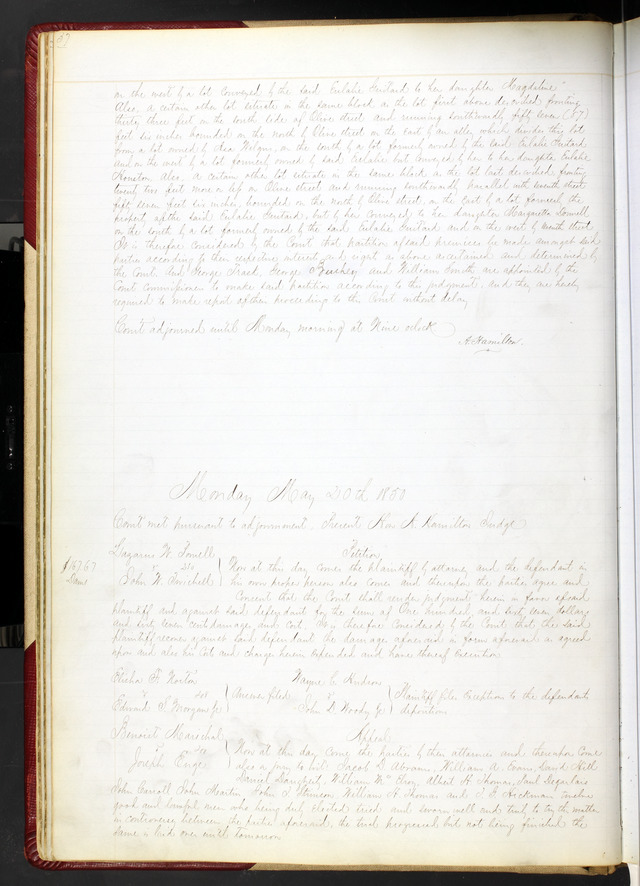 on the west by a lot conveyed by the said Eulalie Guitard to her daughter Magdeline
Also a certain other lot situate in the same block as the lot first above described fronting
thirty three feet on the south side of Olive street and running southwardly fifty seven (57)
feet six inches bounded on the North by Olive street on the East by an alley which divides this lot
from a lot owned by on the south by a lot formerly owned by the said Eulalie Guitard
and on the west by a lot formerly owned by said Eulalie but conveyed by her to her daughter Eulalie
Houston Also a certain other lot situate in the same block as the lot last described fronting
twenty two feet more or less on Olive street and running southwardly parallel with seventh street
fifty seven feet six inches, bounded on the north by Olive street, on the East by a lot formerly the
property of the said Eulalie Guitard but by her conveyed to her daughter Margaretta Sowell
on the south by a lot formerly owned by the said Eulalie Guitard and on the west by seventh street
It is therefore considered by the Court that partition of said premises be made amongst said
parties according to their respective interests and rights as above ascertained and determined by
the Court and George Trask, George and William Smith are appointed by the
Court commissioners to make said partition according to this judgment and they are hereby
required to make report of their proceedings to the Court without delay
Court adjourned until Monday morning at Nine oclock
A Hamilton.
Monday May 20th 1850
Court met pursuant to adjournment Present Hon A Hamilton Judge
Lazarus W. Powell
v 230
John W. Twichell
Petition
$167.67
Dams
Now at this day comes the plaintiff by attorney and the defendant in
his own proper person also comes and thereupon the parties agree and
Consent that the Court shall render judgment herein in favor of said
plaintiff and against said defendant for the sum of One hundred and sixty seven dollars
and sixty seven cents damages and costs It is therefore Considered by the Court that the said
plaintiff recover against said defendant the damages aforesaid in form aforesaid as agreed
upon and also his costs and charges herein expended and have thereof Execution
Elisha F. Norton
v 201
Edward S. Morgan Jr
Answer filed
Wayne E. Hudson
v
John D. Woody Jr
Plaintiff files Exceptions to the defendants
depositions
Benoist Marischal
v
Joseph Enge
Appeal
Now at this day come the parties by their attornies and thereupon Come
also a jury to wit Jacob D. Abrams, William A. Evans, David Hill
Daniel William Albert H. Thomas, Paul
John Carroll John Martin John S. William H. Thomas and J. F. Hickman twelve
good and lawful men who being duly elected tried and sworn well and truly to try the matter
in controversy between the parties aforesaid, the trial progressed but not being finished the
same is laid over until tomorrow